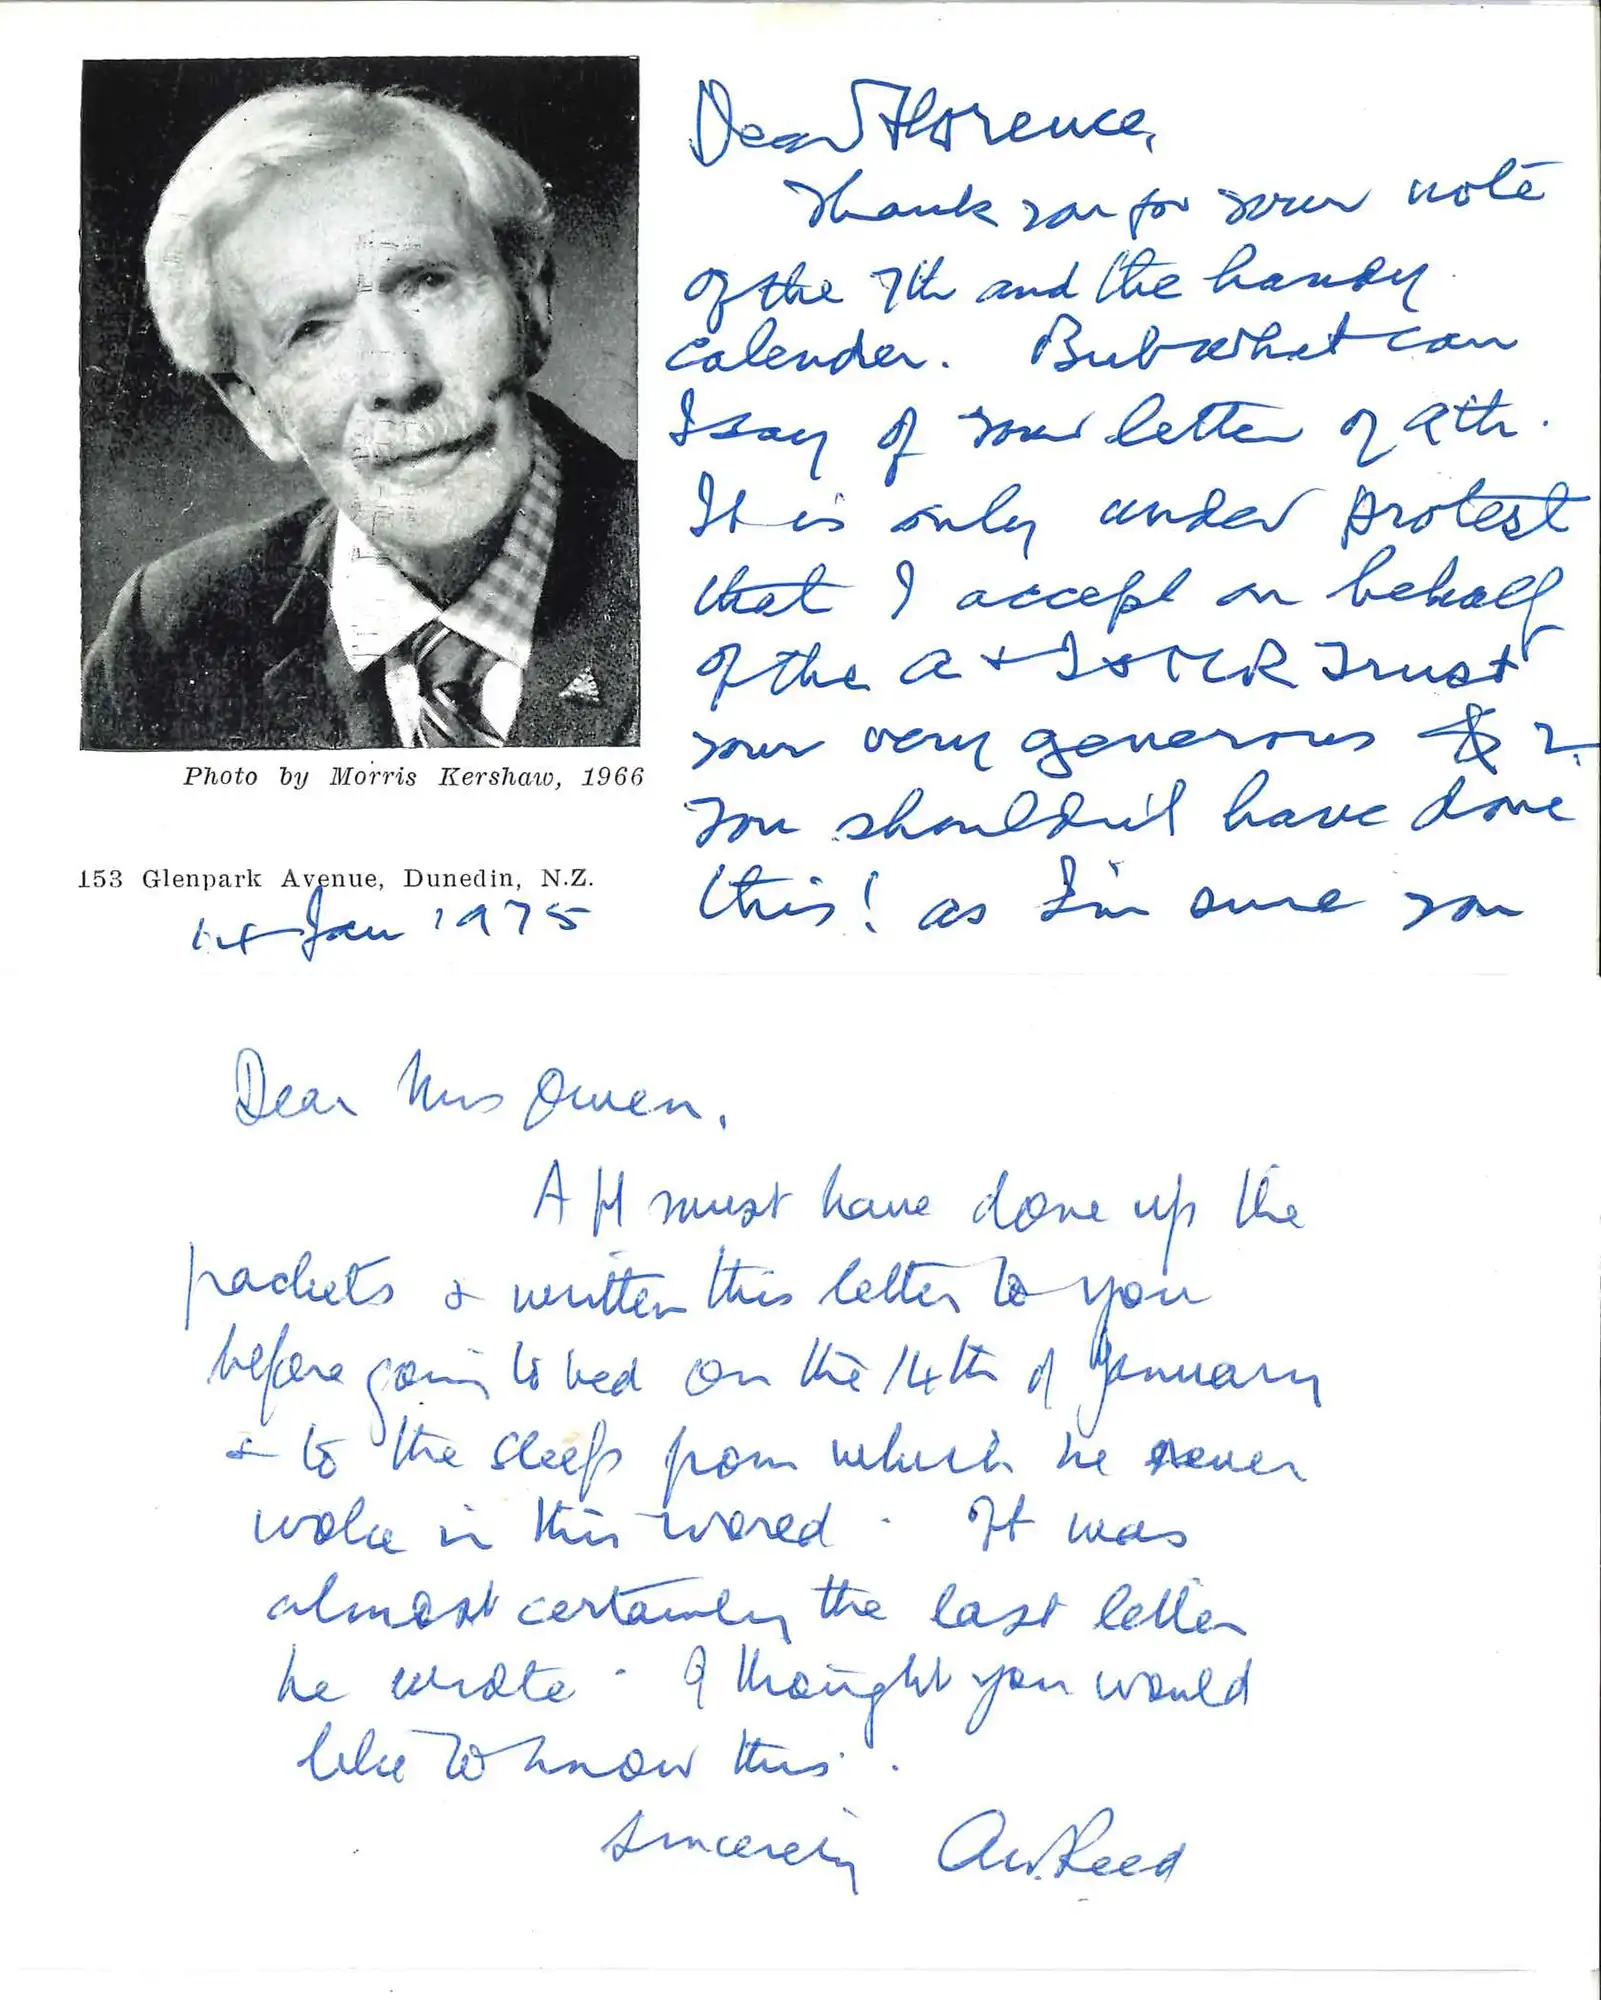 Photo by Morris Kershaw, 1966
153 Glenpark Avenue, Dunedin, N.Z.
14 Jan 1975
Dear Florence,
Thank you for your note
of the 7th and the handy
calender. But what can
I say of your letter of 9th.
It is only under protest
that I accept on behalf
of the A & I & MCR Trust
your very generous $2.
You shouldn't have done
this! as I'm sure you
Dear Mrs Owen,
AH must have done up the
packets & written this letter to you
before going to bed on the 14th of January
& to the sleep from which he never
woke in this world. It was
almost certainly the last letter
he wrote. I thought you would
like to know this.
Sincerely A.W. Reed